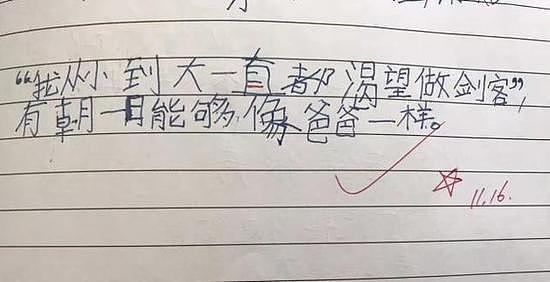 “我从小到大一直都渴望做剑客”,
有朝一日能够像爸爸一样。
11.16.